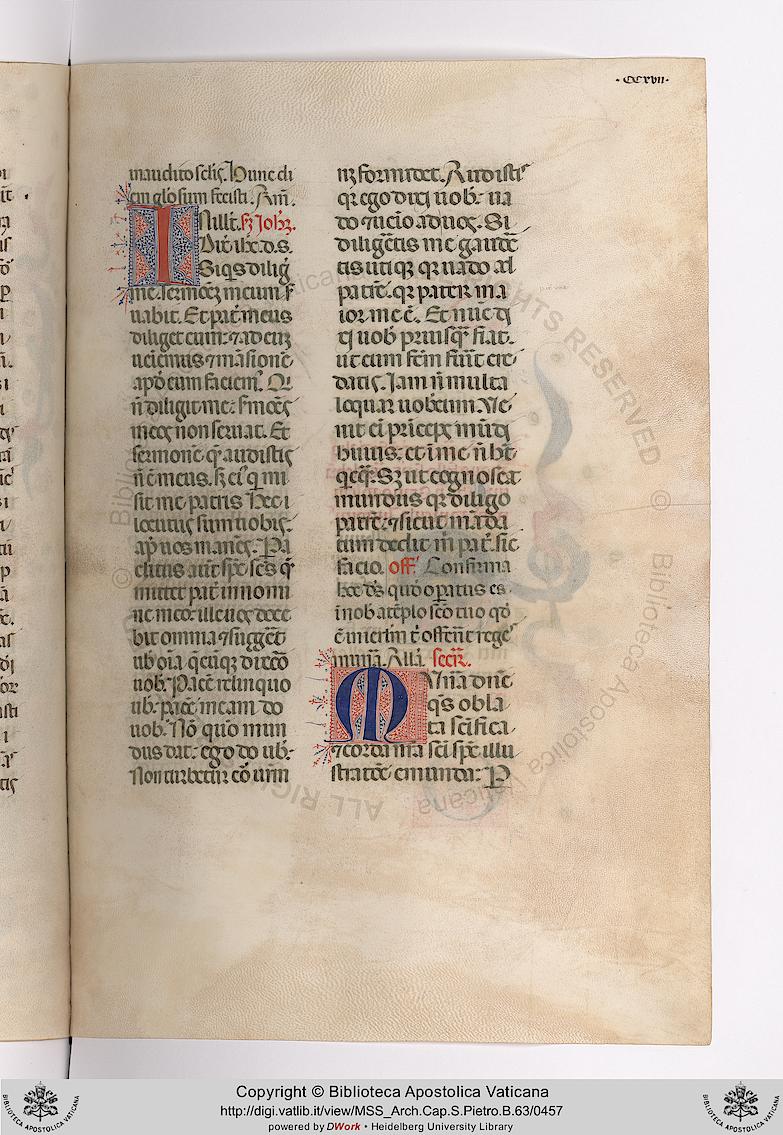 ·CCXVII·
inaudito sclis. Hunc di
em glosum fecisti. Am̄.
In illt̄. scd̄z Joħz.
Dix̄. ihc̄. d. s.
Si q̄s diliḡ
me. sermōēz meum s̄
uabit. Et pat̄ meus
diliget eum: ⁊ ad euz
ueiemus ⁊ māsionē
apd̄ eum faciem⁹. Qi
n̄ diligit me: s̄mōēs
meos non seruat. Et
sermonē q̄ꝫ audistis
n̄ ē meus. sz ei⁹ q̄ mi
sit me patris. Hec i
locutus sum uobis:
ap̄ uos manēs. Pa
clitus aut̄ sp̄c sc̄s q̄ꝫ
mittet pat̄ in nomi
ne meo: ille uos doce
bit omnia ⁊ suggeēt
ub̄ oīa q̄cūqꝫ dixeo
uob̄. Pacē relinquo
ub̄. pacē meam do
uob̄. Nō quō mun
dus dat: ego do ub̄.
Non turbetur cō ur̄m
nꝫ formidet. Audistis
qꝛ ego dixi uob̄: ua
do ⁊ uēio ad uos. Si
diligētis me gaudēē
tis utiqꝫ qꝛ uado ad
patrē. qꝛ pater ma
ior me ē. Et nūc di
xi uob̄ priusq̄ꝫ fiat.
ut cum fc̄m fuīt cre
datis. Iam n̄ multa
loquar uobēum. Ve
nit ei̅ pꝛīceps mūdi
huius: et ī me n̄ hb̄t
qcq̄ꝫ. Sz ut cognoscat
mundus qꝛ diligo
patrē: ⁊ sicut māda
tum dedit m̄ pat̄. sic
facio. off̄. Confirma
hoc ds̄ quō opatus es
ī nob̄ a tēplo scō tuo qd̄
ē in ierlm̄ t̄ offeēnt reges
munīa. Allā. secīr.
Munīa dn̄e
qs̄ obla
ta scīfica
⁊ corda nīa scī sp̄c illu
stratōē emunda: P
Copyright © Biblioteca Apostolica Vaticana
http://digi.vatlib.it/view/MSS_Arch.Cap.S.Pietro.B.63/0457
powered by DWork • Heidelberg University Library